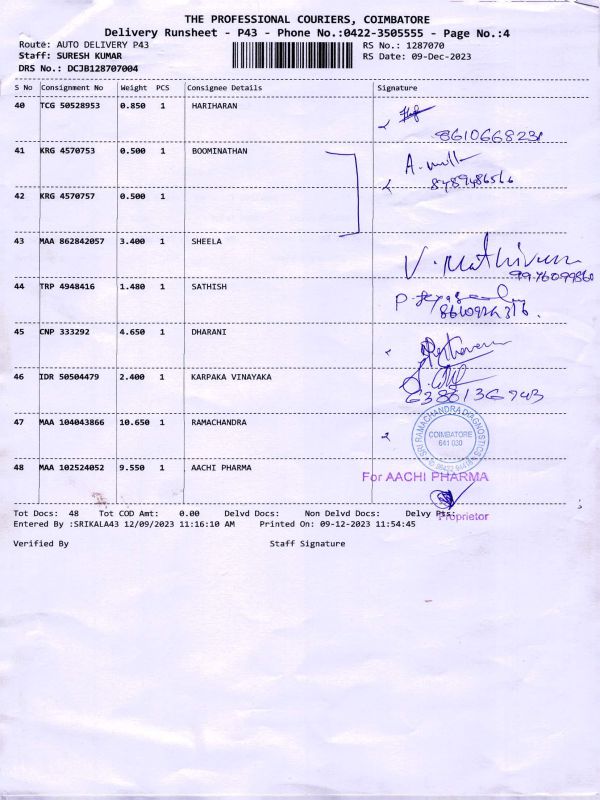 THE PROFESSIONAL COURIERS, COIMBATORE
Delivery Runsheet - P43 - Phone No.:0422-3505555 - Page No.:4
Route: AUTO DELIVERY P43 RS No.: 1287070
Staff: SURESH KUMAR RS Date: 09-Dec-2023
DRS No.: DCJB128707004
S No Consignment No Weight PCS Consignee Details Signature
40 TCG 50528953 0.850 1 HARIHARAN
8610668231
41 KRG 4570753 0.500 1 BOOMINATHAN
8489486566
42 KRG 4570757 0.500 1
43 MAA 862842057 3.400 1 SHEELA
9976099860
44 TRP 4948416 1.480 1 SATHISH
45 CNP 333292 4.650 1 DHARANI
46 IDR 50504479 2.400 1 KARPAKA VINAYAKA
6388136943
47 MAA 104043866 10.650 1 RAMACHANDRA
SRI RAMACHANDRA DIAGNOSTICS
COIMBATORE
641 030
48 MAA 102524052 9.550 1 AACHI PHARMA
For AACHI PHARMA
Proprietor
Tot Docs: 48 Tot COD Amt: 0.00 Delvd Docs: Non Delvd Docs: Delvy Pts:
Entered By :SRIKALA43 12/09/2023 11:16:10 AM Printed On: 09-12-2023 11:54:45
Verified By Staff Signature